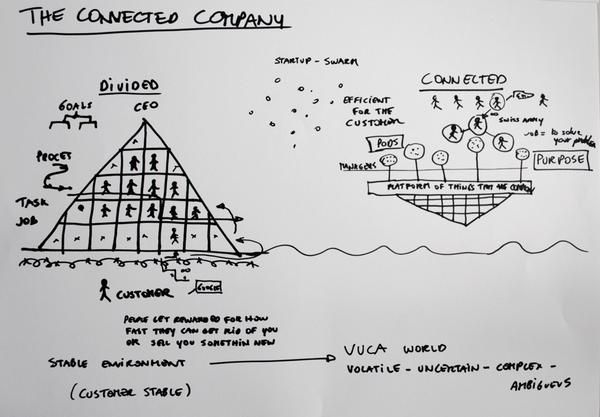 THE CONNECTED COMPANY
STARTUP - SWARM
DIVIDED
CEO
GOALS
PROCET
TASK
JOB
CUSTOMER
GOOGLE
PEOPLE GET REWARDED FOR HOW
FAST THEY CAN GET RID OF YOU
OR SELL YOU SOMETHIN NEW
CONNECTED
EFFICIENT
FOR THE
CUSTOMER
SWISS ARMY
JOB = to solve
your problem
PODS
MANAGERS
PURPOSE
PLATFORM OF THINGS THAT ARE COMMON
STABLE ENVIRONMENT
(CUSTOMER STABLE)
VUCA WORLD
VOLATILE - UNCERTAIN - COMPLEX -
AMBIGUEUS